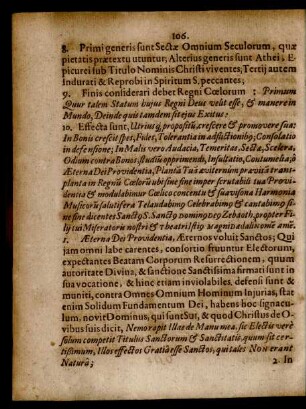 106.
8. Primi generis sunt Sectæ Omnium Seculorum, quæ
pietatis prætextu utuntur; Alterius generis sunt Athei, E-
picurei sub Titulo Nominis Christi viventes, Tertij autem
Indurati & Reprobi in Spiritum S. peccantes;
9. Finis considerari debet Regni Cœlorum : Primum
Quur talem Statum hujus Regni Deus velit esse, & manere in
Mundo, Deinde quis tamdem sit ejus Exitus?
10. Effecta sunt, Utriusq; propositū crescere & promovere sua:
In Bonis crescit spes, Fides, Tolerantia in adflictionibꝰ; Consolatio
in defensione; In Malis vero Audacia, Temeritas, Secta, Scelera,
Odium contra Bonos, studiū opprimendi, Insultatio, Contumelia; ò
Æterna Dei Providentia, Planta Tuā æviternum pravitā trans-
planta in Regnū Cœlorū ubi sine fine semper scrutabili tua Provi-
dentia & modulabimur Cœlico concentu & sua visona Harmonia
Musicorū salutifera Telaudabimꝰ Celebrabimꝰ & cantabimꝰ si-
ne fine dicentes Sanctꝰ S. Sanctꝰ Dominꝰ Deꝰ Zebaoth, propter Fi-
lij tui Miseratoris nostri &
1. Æterna Dei Providentia, Æternos voluit Sanctos; Qui
jam omni labe carentes, consortio fruuntur Electorum,
expectantes Beatam Corporum Resurrectionem, quum
autoritate Divina, & sanctione Sanctissima firmati sunt in
sua vocatione, & hinc etiam inviolabiles, defensi sunt &
muniti, contra Omnes Omnium Hominum Injurias, stat
enim Solidum Fundamentum Dei, habens hoc signacu-
lum, novit Dominus, qui sunt Sui, & quod Christus de O-
vibus suis dicit, Nemo rapit Illas de Manu mea. sic Electis verè
solum competit Titulus Sanctorum & Sanctitatis, quum sit cer-
tissimum, Illos effectos Gratiâ esse Sanctos, qui tales Non erant
Naturâ;
2. In